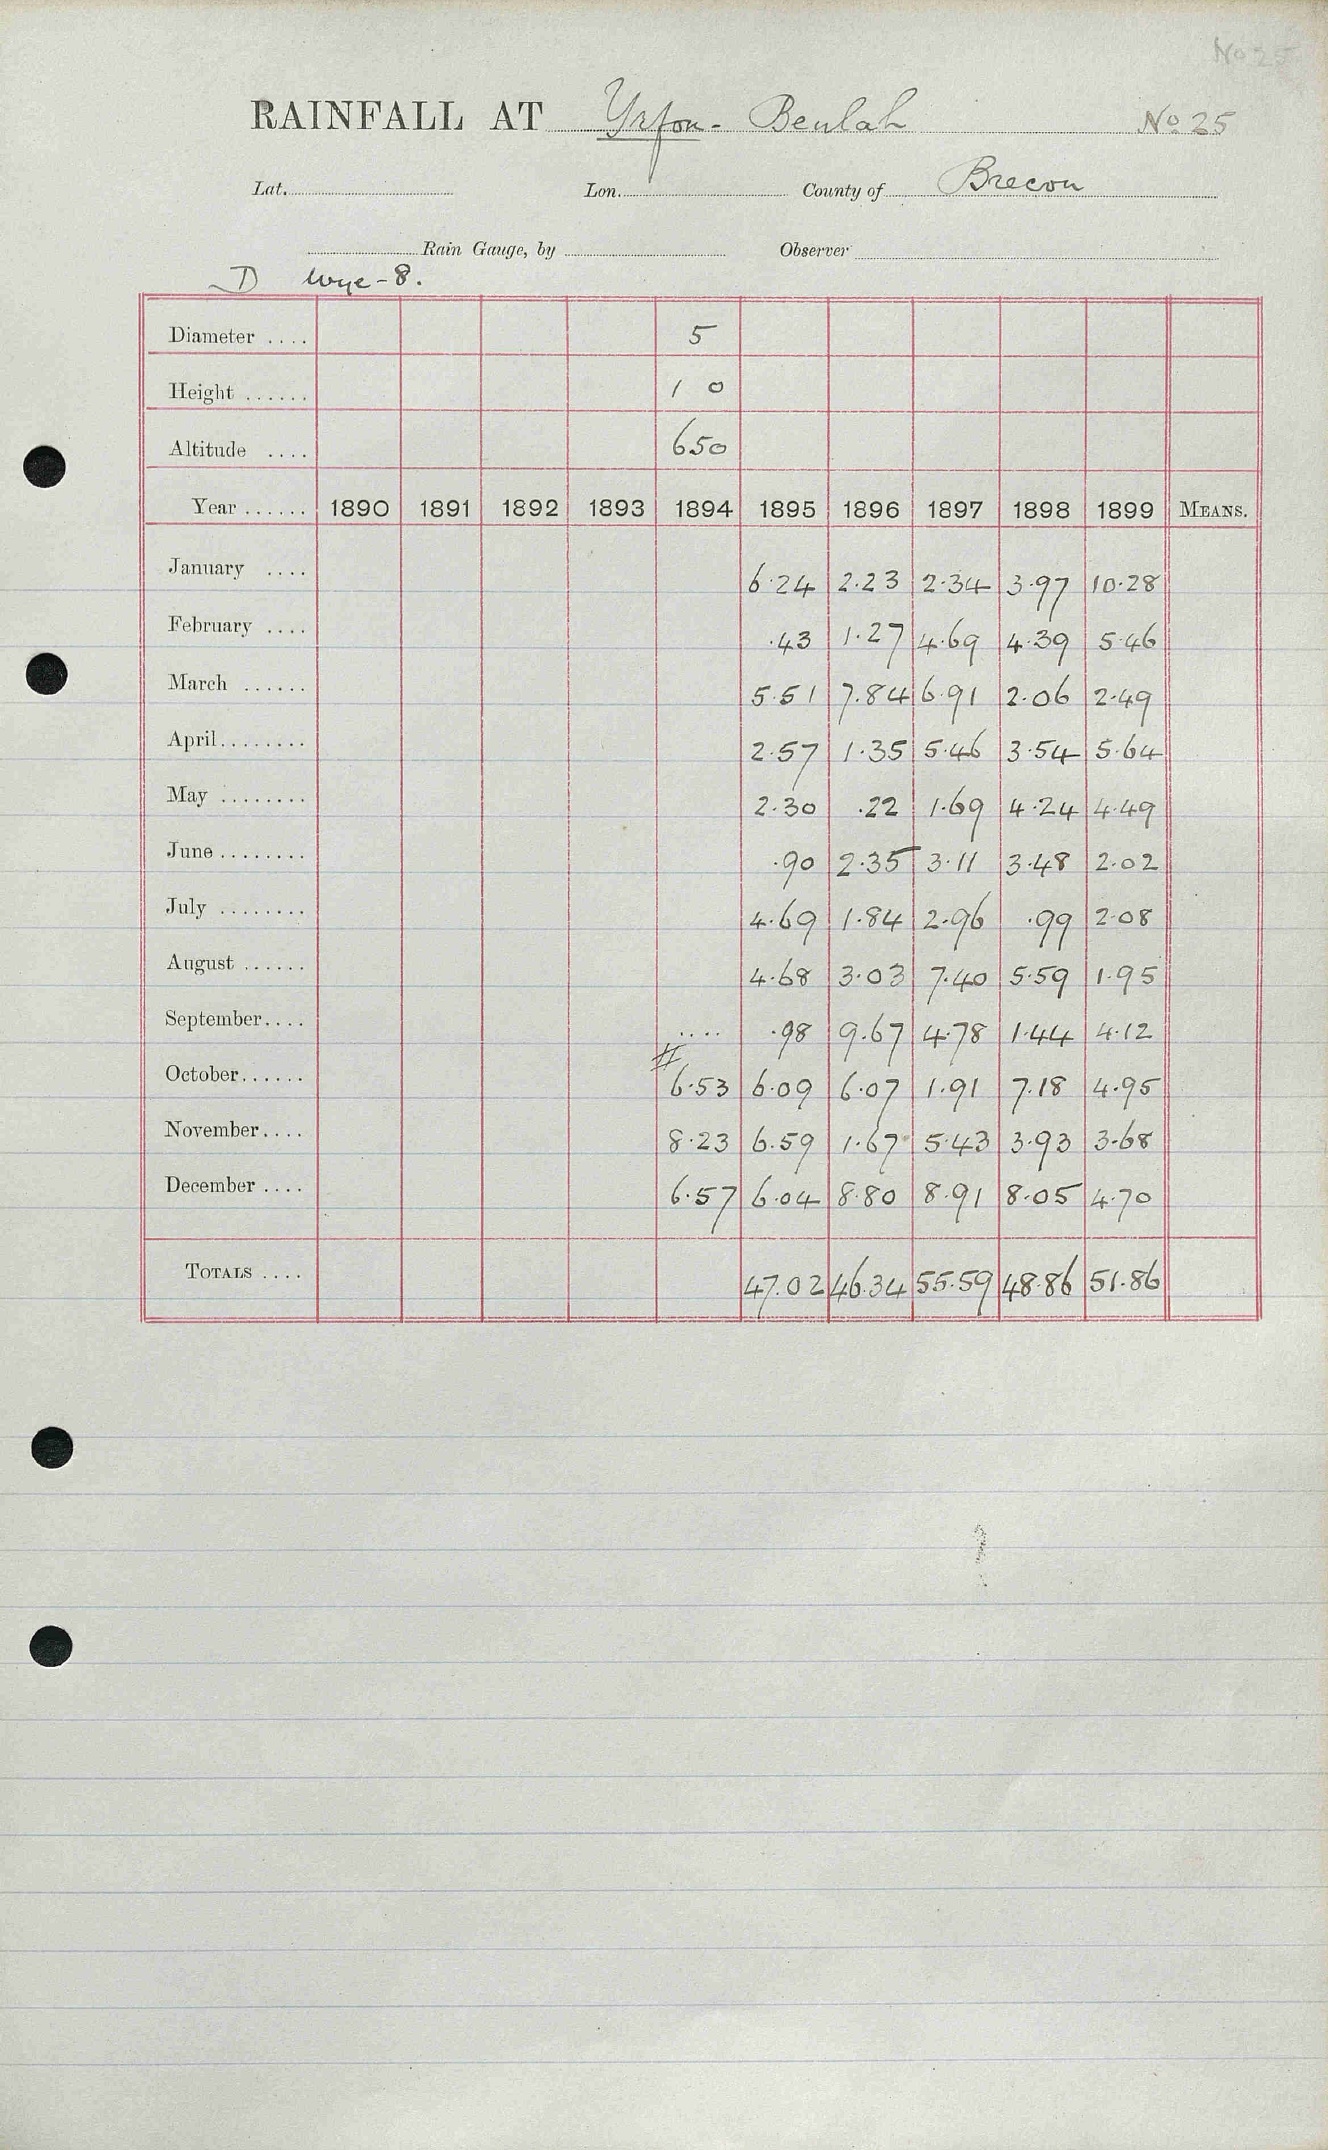 No 25
RAINFALL AT Yrfon - Beulah No 25
Lat. Lon. County of Brecon
Rain Gauge, by Observer
D Wye-8.
Diameter .... 5
Height ...... 1 0
Altitude .... 650
Year ...... 1890 1891 1892 1893 1894 1895 1896 1897 1898 1899 MEANS.
January .... 6.24 2.23 2.34 3.97 10.28
February .... .43 1.27 4.69 4.39 5.46
March ...... 5.51 7.84 6.91 2.06 2.49
April........ 2.57 1.35 5.46 3.54 5.64
May ........ 2.30 .22 1.69 4.24 4.49
June ........ .90 2.35 3.11 3.48 2.02
July ........ 4.69 1.84 2.96 .99 2.08
August ...... 4.68 3.03 7.40 5.59 1.95
September.... .... .98 9.67 4.78 1.44 4.12
October...... # 6.53 6.09 6.07 1.91 7.18 4.95
November.... 8.23 6.59 1.67 5.43 3.93 3.68
December .... 6.57 6.04 8.80 8.91 8.05 4.70
TOTALS .... 47.02 46.34 55.59 48.86 51.86